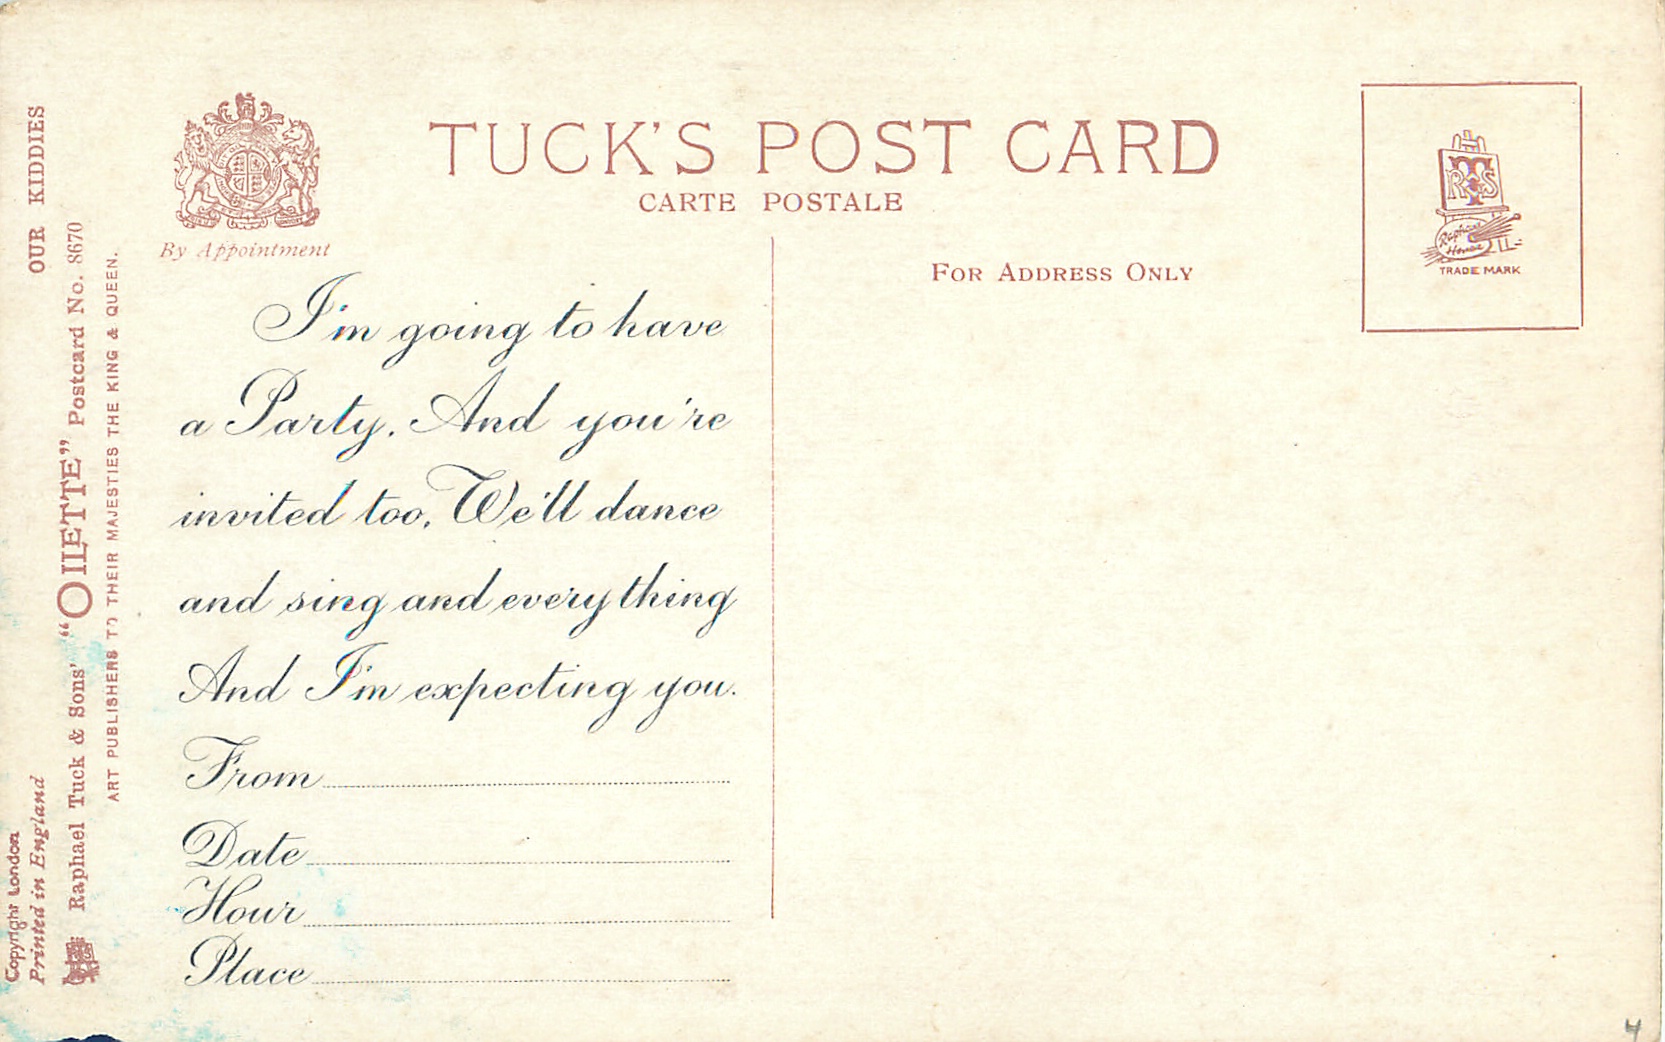 TUCK'S POST CARD
CARTE POSTALE
By Appointment
FOR ADDRESS ONLY
R T & S
Raphael
House
TRADE MARK
I'm going to have
a Party. And you're
invited too. We'll dance
and sing and everything
And I'm expecting you.
From
Date
Hour
Place
OUR KIDDIES
Raphael Tuck & Sons' "OILETTE" Postcard No. 8670
ART PUBLISHERS TO THEIR MAJESTIES THE KING & QUEEN.
Copyright London
Printed in England
4